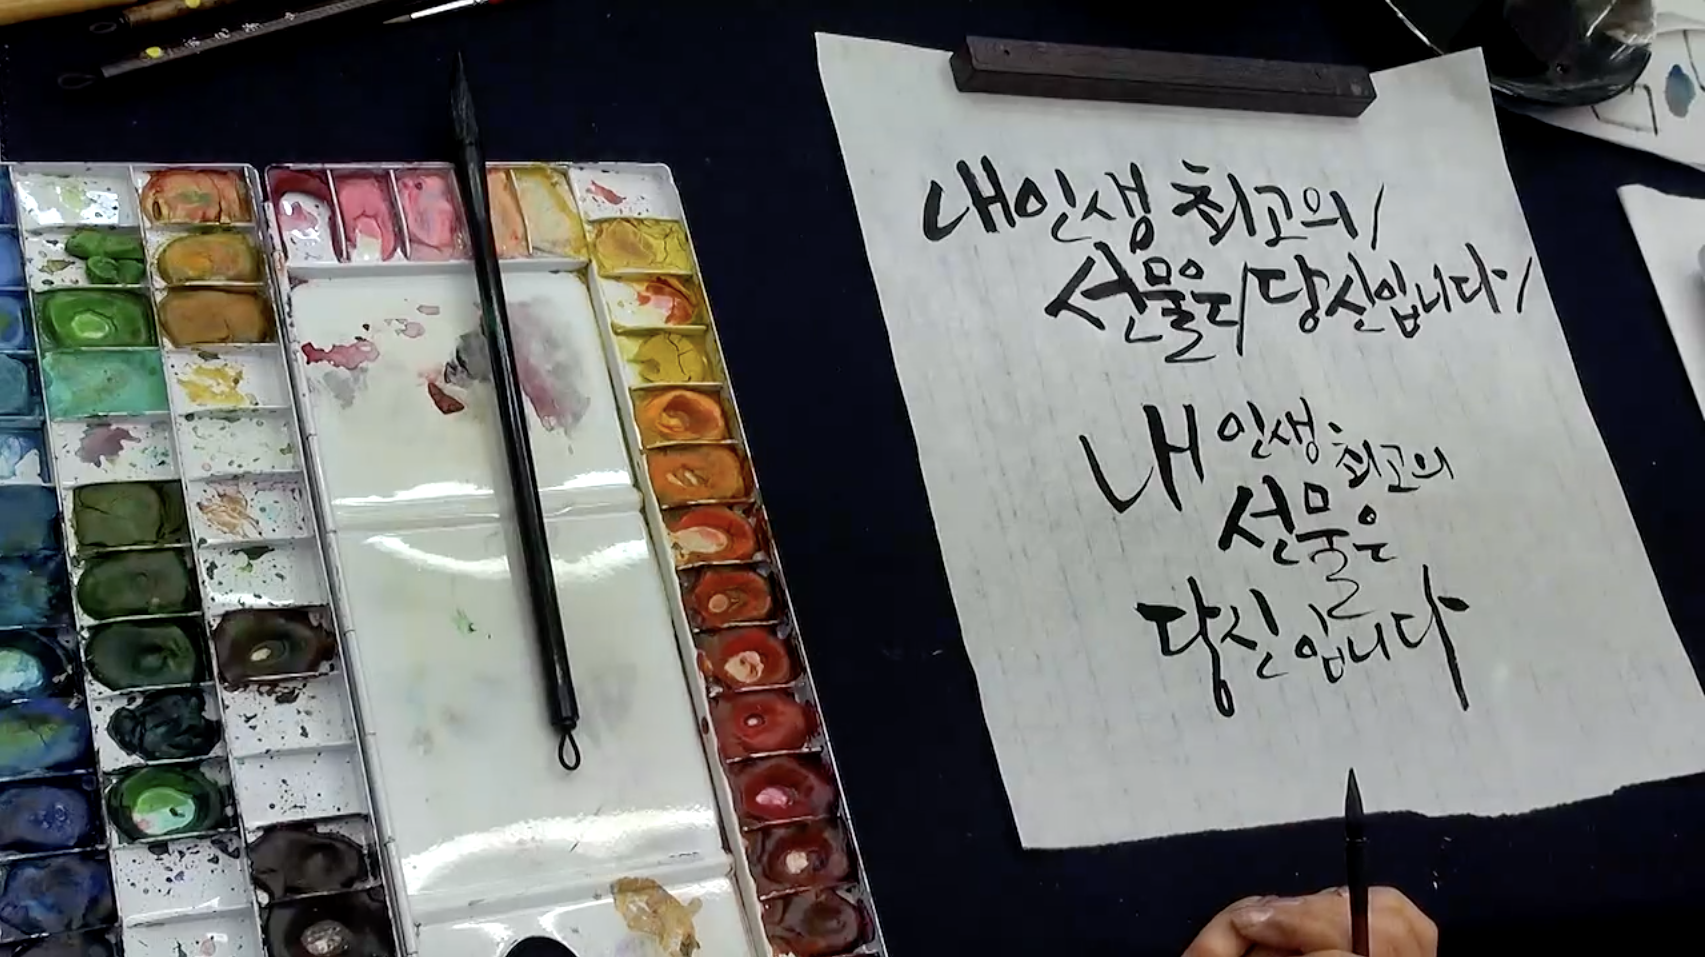 내 인생 최고의/
선물은/당신입니다/
내 인생 최고의
선물은
당신입니다